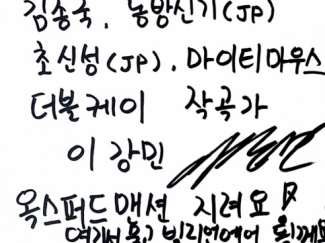 김종국, 동방신기(JP)
초신성(JP), 마이티마우스
더블케이 작곡가
이 강민
옥스퍼드 맨션 지려요
여기서 살고 빌리언에어